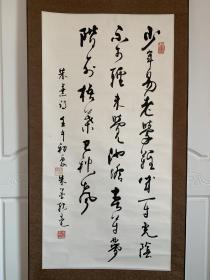 少年易老學難成一寸光陰
不可輕未覺池塘春草夢
階前梧葉已秋聲
朱熹詩 壬午初夏